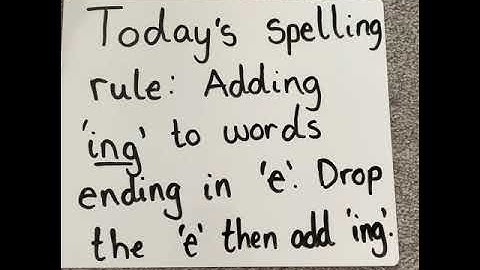 Today's spelling
rule: Adding
'ing' to words
ending in 'e'. Drop
the 'e' then add 'ing'.